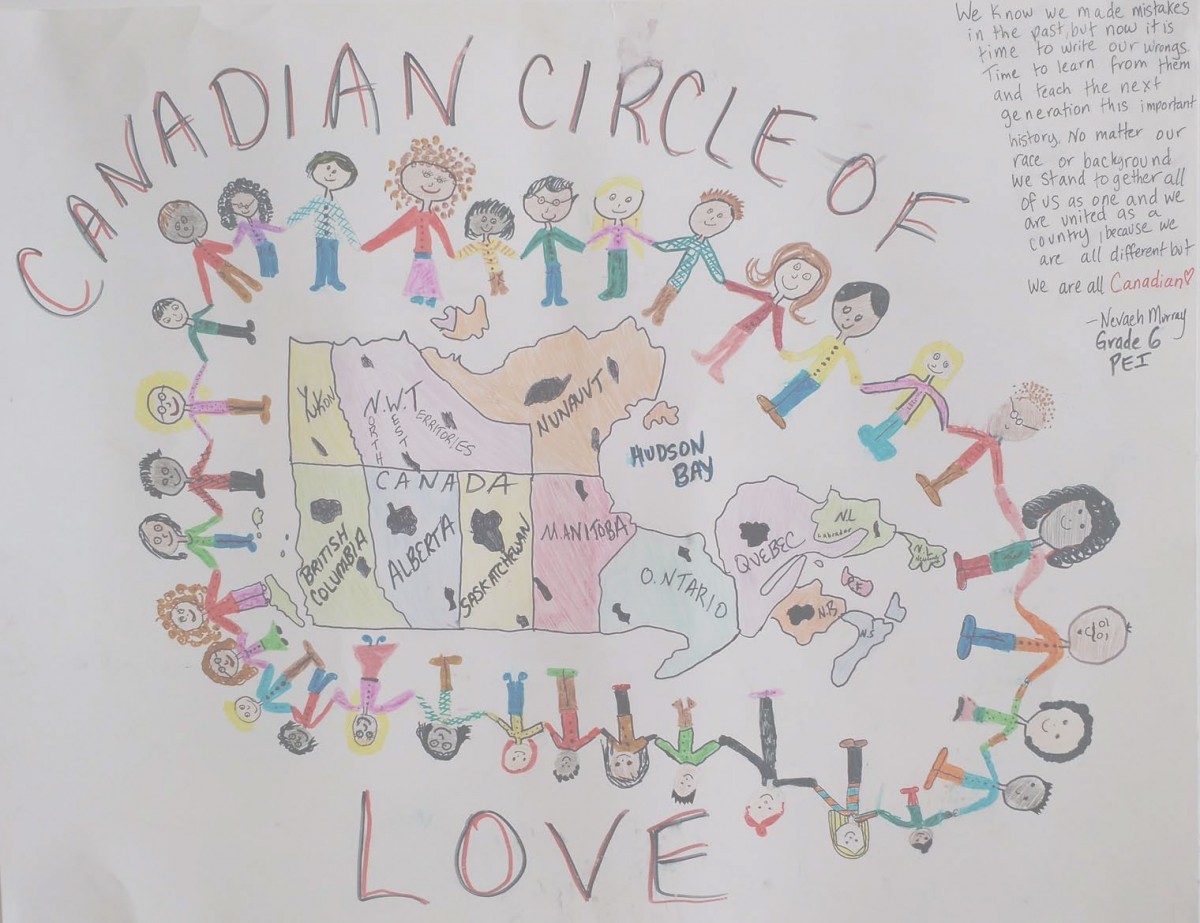 CANADIAN CIRCLE OF
We Know we made mistakes
in the past, but now it is
time to write our wrongs.
Time to learn from them
and teach the next
generation this important
history. No matter our
race or background
we stand together all
of us as one and we
are united as a
country, because we
are all different but
We are all Canadian♡
-Nevaeh Murray
Grade 6
PEI
YUKON
N.W.T
NORTH
WEST
TERRITORIES
NUNAVUT
HUDSON
BAY
CANADA
BRITISH
COLUMBIA
ALBERTA
SASKATCHEWAN
MANITOBA
ONTARIO
QUEBEC
N.L
Labrador
N.L
N.B
N.S
LOVE